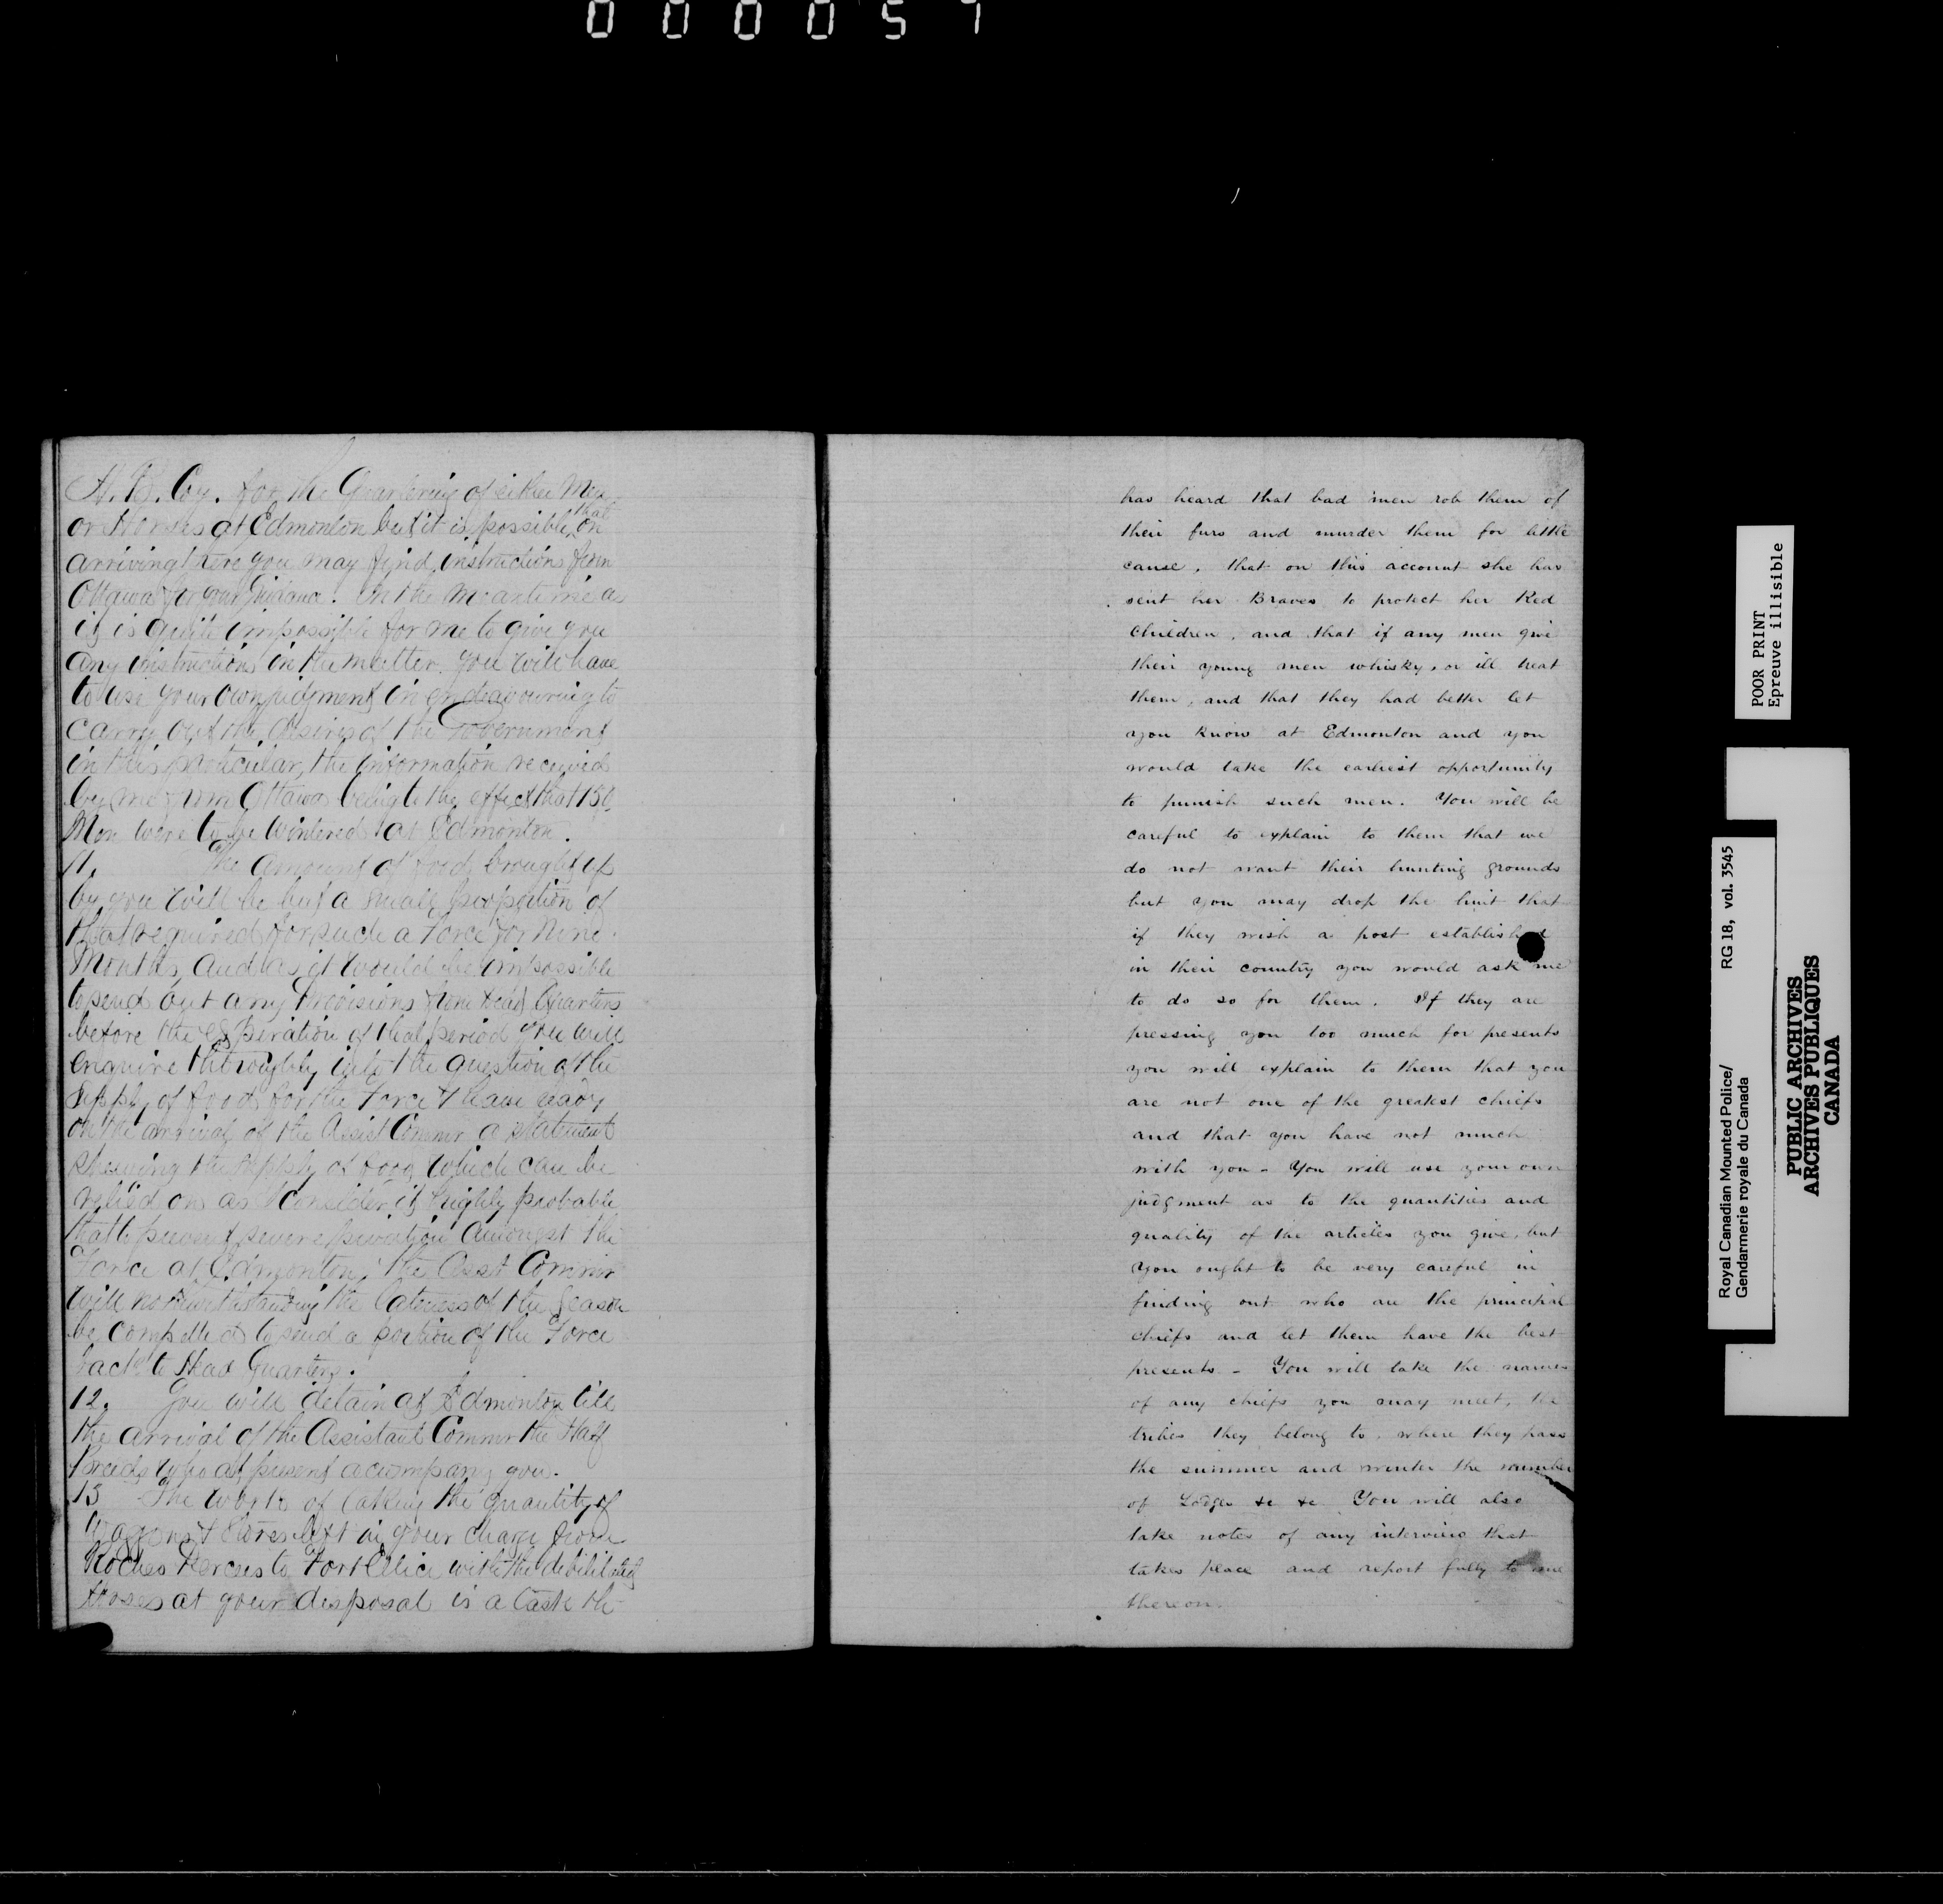 00005
H. B. Coy. for the Quartering of either Men
or Horses at Edmonton but it is possible that on
arriving there you may find instructions from
Ottawa for your Guidance. In the meantime as
it is quite impossible for me to give you
any instructions in the matter. you will have
to use your own judgment in endeavouring to
carry out the desires of the Government
in this particular, the information received
by me from Ottawa being to the effect that 150
Men were to be Wintered at Edmonton.
11. The Amount of food brought up
by you will be but a small proportion of
that required for such a Force for Nine
Months, and as it would be impossible
to send out any Provisions from Head Quarters
before the expiration of that period you will
enquire thoroughly into the question of the
supply of food for the Force & have ready
on the arrival of the Assist Commr a statement
shewing the supply of food which can be
relied on as I consider it highly probable
that to prevent severe privation amongst the
Force at Edmonton, the Asst Commr
will notwithstanding the lateness of the Season
be compelled to send a portion of the Force
back to Head Quarters.
12. You will detain at Edmonton till
the arrival of the Assistant Commr the Half
breeds who at present accompany you.
13 The work of taking the quantity of
Waggons & left in your charge from
Roches Percés to Fort Ellice with the debilitated
Horses at your disposal is a task the
has heard that bad men rob them of
their furs and murder them for little
cause, that on this account she has
sent her Braves to protect her Red
Children, and that if any men give
their young men whisky, or ill treat
them, and that they had better let
you know at Edmonton and you
would take the earliest opportunity
to punish such men. You will be
careful to explain to them that we
do not want their hunting grounds
but you may drop the hint that
if they wish a post established
in their country you would ask me
to do so for them. If they are
pressing you too much for presents
you will explain to them that you
are not one of the greatest chiefs
and that you have not much
with you - You will use your own
judgment as to the quantities and
quality of the articles you give, but
you ought to be very careful in
finding out who are the principal
chiefs and let them have the best
presents - You will take the names
of any chiefs you may meet, the
tribes they belong to, where they pass
the summer and winter the number
of Lodges &c &c You will also
take notes of any interview that
takes place and report fully to me
thereon.
POOR PRINT
Epreuve illisible
Royal Canadian Mounted Police/ RG 18, vol. 3545
Gendarmerie royale du Canada
PUBLIC ARCHIVES
ARCHIVES PUBLIQUES
CANADA